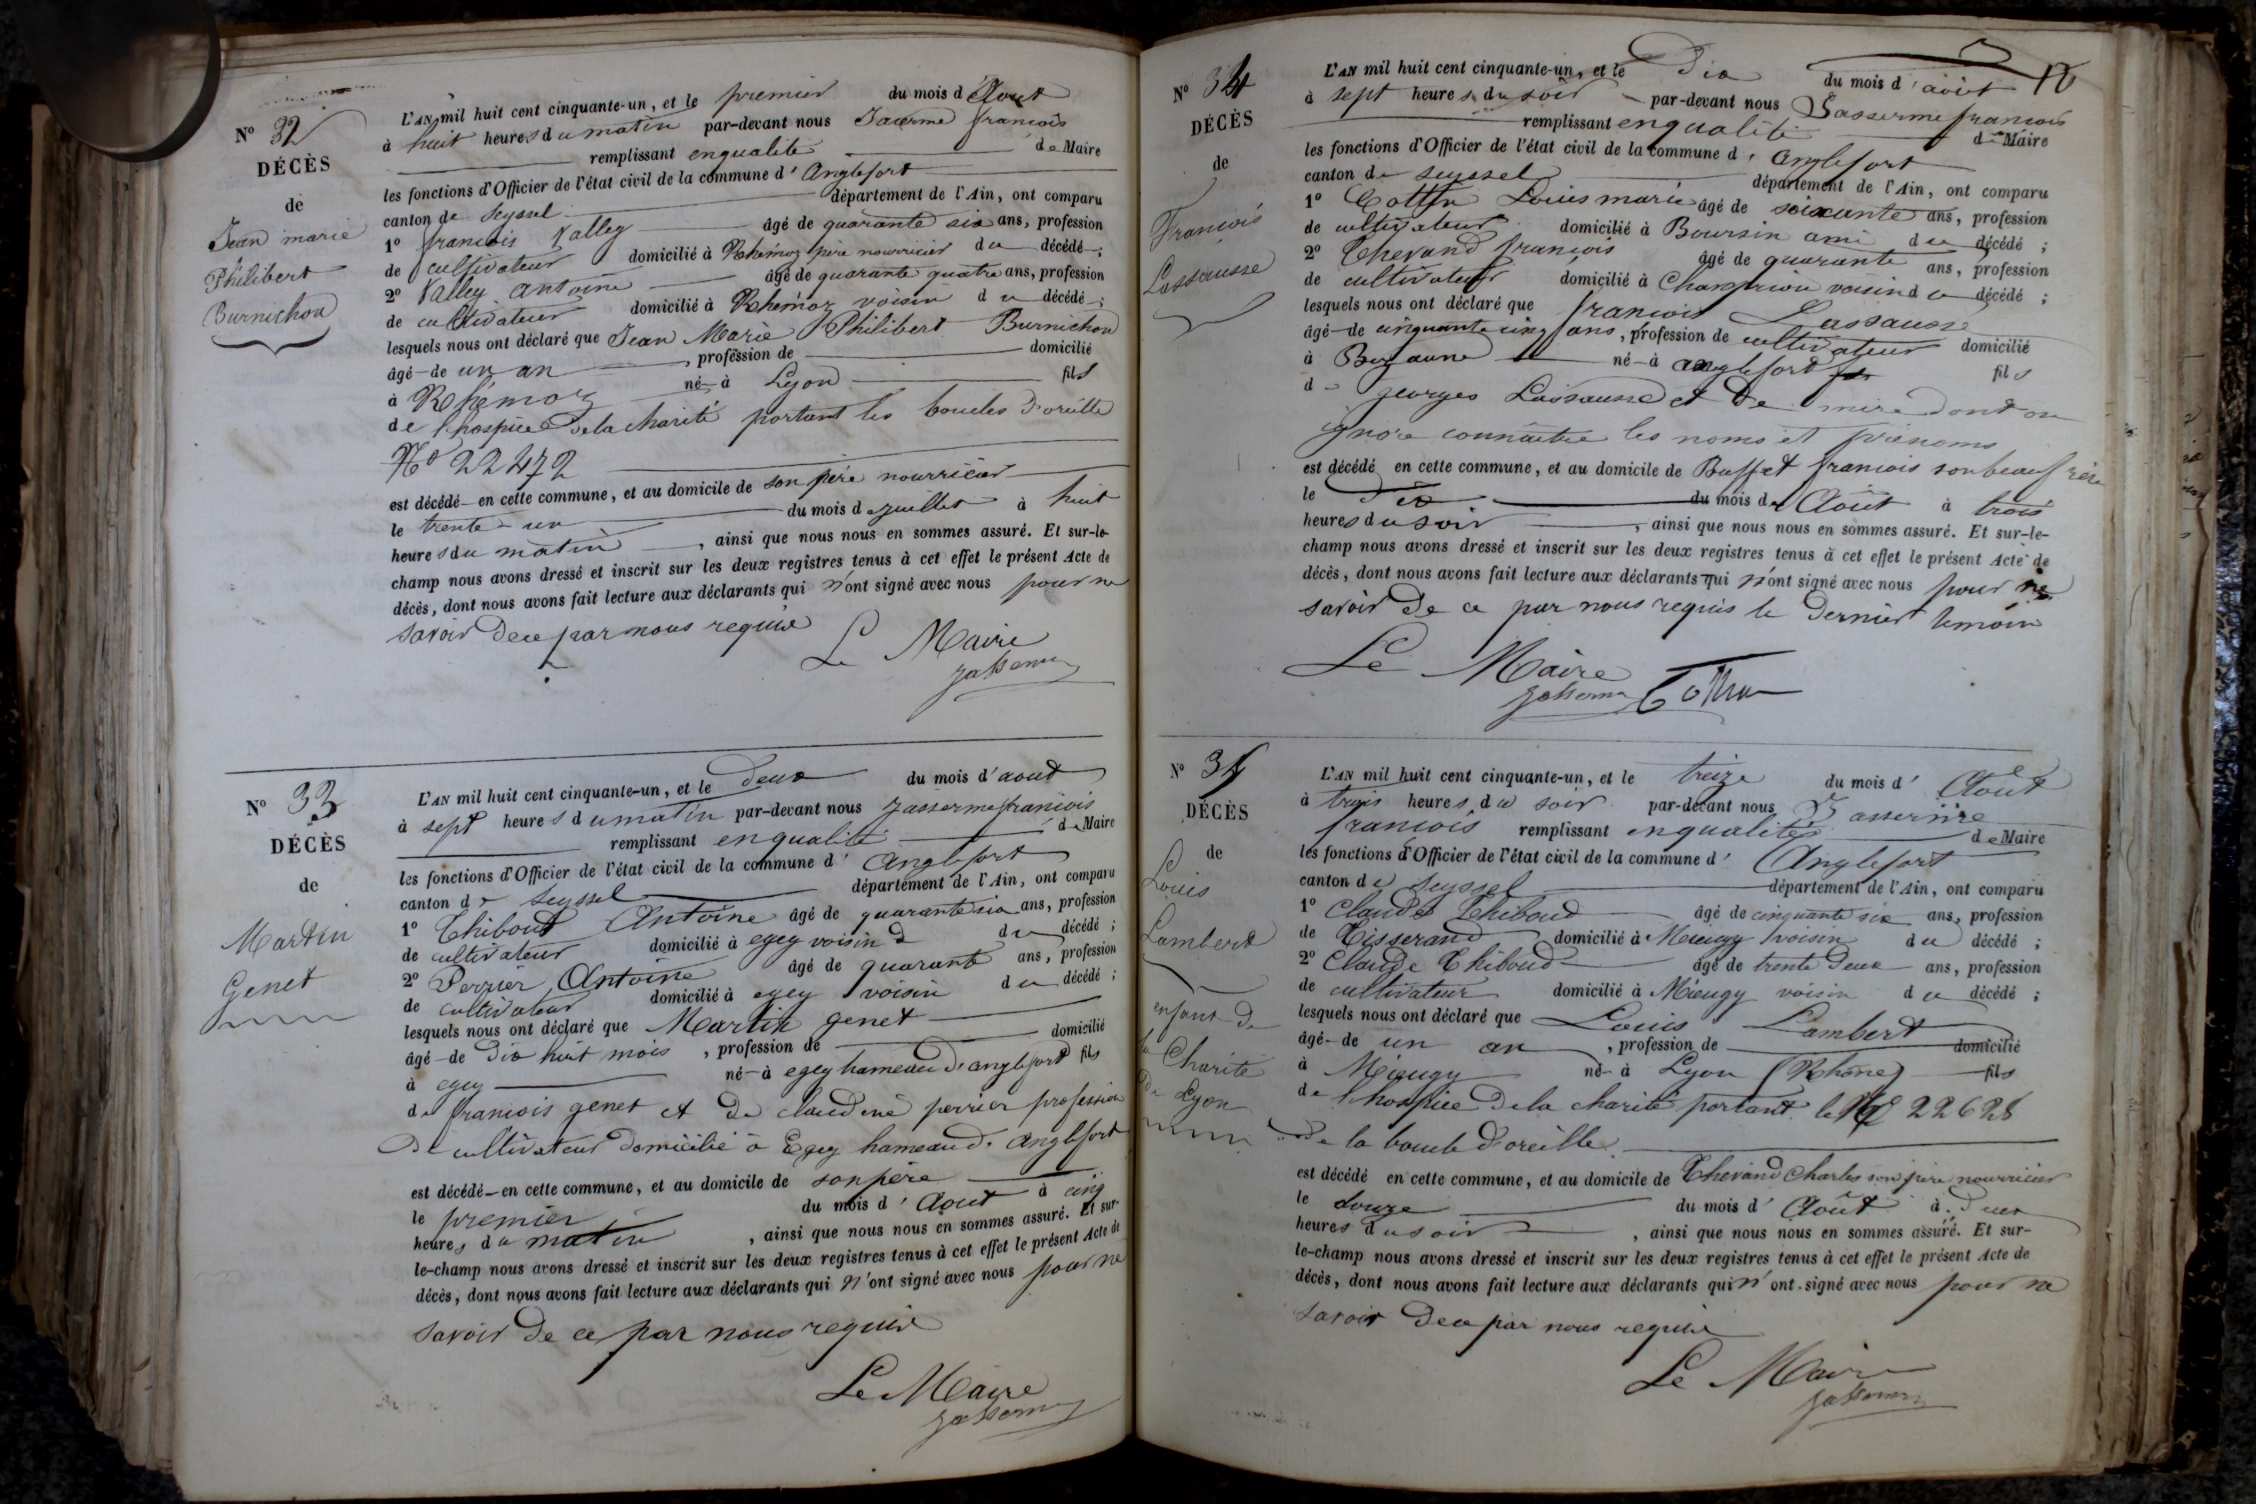 N° 32
DÉCÈS
de
Jean marie
Philibert
Burnichon
L'AN mil huit cent cinquante-un, et le premier du mois d'Aout
à huit heures du matin par-devant nous Jaserme francois
remplissant enqualité de Maire
les fonctions d'Officier de l'état civil de la commune d'Anglefort
canton de Seyssel département de l'Ain, ont comparu
1° francois Valley âgé de quarante six ans, profession
de cultivateur domicilié à Rhémoz père nourricier du décédé ;
2° Valley Antoine âgé de quarante quatre ans, profession
de cultivateur domicilié à Rhémoz voisin du décédé ;
lesquels nous ont déclaré que Jean Marie Philibert Burnichon
âgé de un an, profession de domicilié
à Rhémoz né à Lyon fils
de l'hospice dela charité portant les boucles d'oreille
N° 22472
est décédé en cette commune, et au domicile de son père nourricier
le trente-un du mois de juillet à huit
heures du matin, ainsi que nous nous en sommes assuré. Et sur-le-
champ nous avons dressé et inscrit sur les deux registres tenus à cet effet le présent Acte de
décès, dont nous avons fait lecture aux déclarants qui n'ont signé avec nous pour ne
savoir dece par nous requis
Le Maire
Jasserme
N° 33
DÉCÈS
de
Martin
Genet
L'AN mil huit cent cinquante-un, et le deux du mois d'aout
à sept heures du matin par-devant nous Jasserme francois
remplissant enqualité de Maire
les fonctions d'Officier de l'état civil de la commune d'Anglefort
canton de Seyssel département de l'Ain, ont comparu
1° Thiboud Antoine âgé de quarante six ans, profession
de cultivateur domicilié à egey voisin d du décédé ;
2° Perrier Antoine âgé de quarante ans, profession
de cultivateur domicilié à egey voisin du décédé ;
lesquels nous ont déclaré que Martin genet
âgé de dix huit mois, profession de domicilié
à egey né à egey hameau d'anglefort fils
de francois genet et de claudine perrier profession
de cultivateur domicilié à Egey hameau d'anglefort
est décédé en cette commune, et au domicile de son père
le premier du mois d'Aout à cinq
heures du matin, ainsi que nous nous en sommes assuré. Et sur-
le-champ nous avons dressé et inscrit sur les deux registres tenus à cet effet le présent Acte de
décès, dont nous avons fait lecture aux déclarants qui n'ont signé avec nous pour ne
savoir de ce par nous requis
Le Maire
Jasserme
N° 34
DÉCÈS
de
François
Lassausse
L'AN mil huit cent cinquante-un, et le dix du mois d'août
à sept heures du soir par-devant nous Jasserme francois
remplissant enqualité de Maire
les fonctions d'Officier de l'état civil de la commune d'Anglefort
canton de Seyssel département de l'Ain, ont comparu
1° Cottin Louis marie âgé de soixante ans, profession
de cultivateur domicilié à Boursin ami du décédé ;
2° Thevand francois âgé de quarante ans, profession
de cultivateur domicilié à Champriou voisin du décédé ;
lesquels nous ont déclaré que francois Lassausse
âgé de cinquante cinq ans, profession de cultivateur domicilié
à né à anglefort fils
de georges Lassausse et de mère dont on
ignore connaitre les noms et prénoms
est décédé en cette commune, et au domicile de Buffet francois son beaufrère
le dix du mois de Août à trois
heures du soir, ainsi que nous nous en sommes assuré. Et sur-le-
champ nous avons dressé et inscrit sur les deux registres tenus à cet effet le présent Acte de
décès, dont nous avons fait lecture aux déclarants qui n'ont signé avec nous pour ne
savoir de ce par nous requis le dernier témoin
Le Maire
Jasserme Cottin
N° 35
DÉCÈS
de
Louis
Lambert
enfant de
la Charité
de Lyon
L'AN mil huit cent cinquante-un, et le treize du mois d'Août
à trois heures du soir par-devant nous Jasserme
francois remplissant enqualité de Maire
les fonctions d'Officier de l'état civil de la commune d'Anglefort
canton de Seyssel département de l'Ain, ont comparu
1° Claude Thiboud âgé de cinquante six ans, profession
de Tisserand domicilié à Mieugy voisin du décédé ;
2° Claude Thiboud âgé de trente deux ans, profession
de cultivateur domicilié à Mieugy voisin du décédé ;
lesquels nous ont déclaré que Louis Lambert
âgé de un an, profession de domicilié
à Mieugy né à Lyon (Rhône) fils
de l'hospice dela charité portant le N° 22628
de la boucle d'oreille
est décédé en cette commune, et au domicile de Thevand Charles son père nourricier
le douze du mois d'Août à deux
heures du soir, ainsi que nous nous en sommes assuré. Et sur-
le-champ nous avons dressé et inscrit sur les deux registres tenus à cet effet le présent Acte de
décès, dont nous avons fait lecture aux déclarants qui n'ont signé avec nous pour ne
savoir dece par nous requis
Le Maire
Jasserme